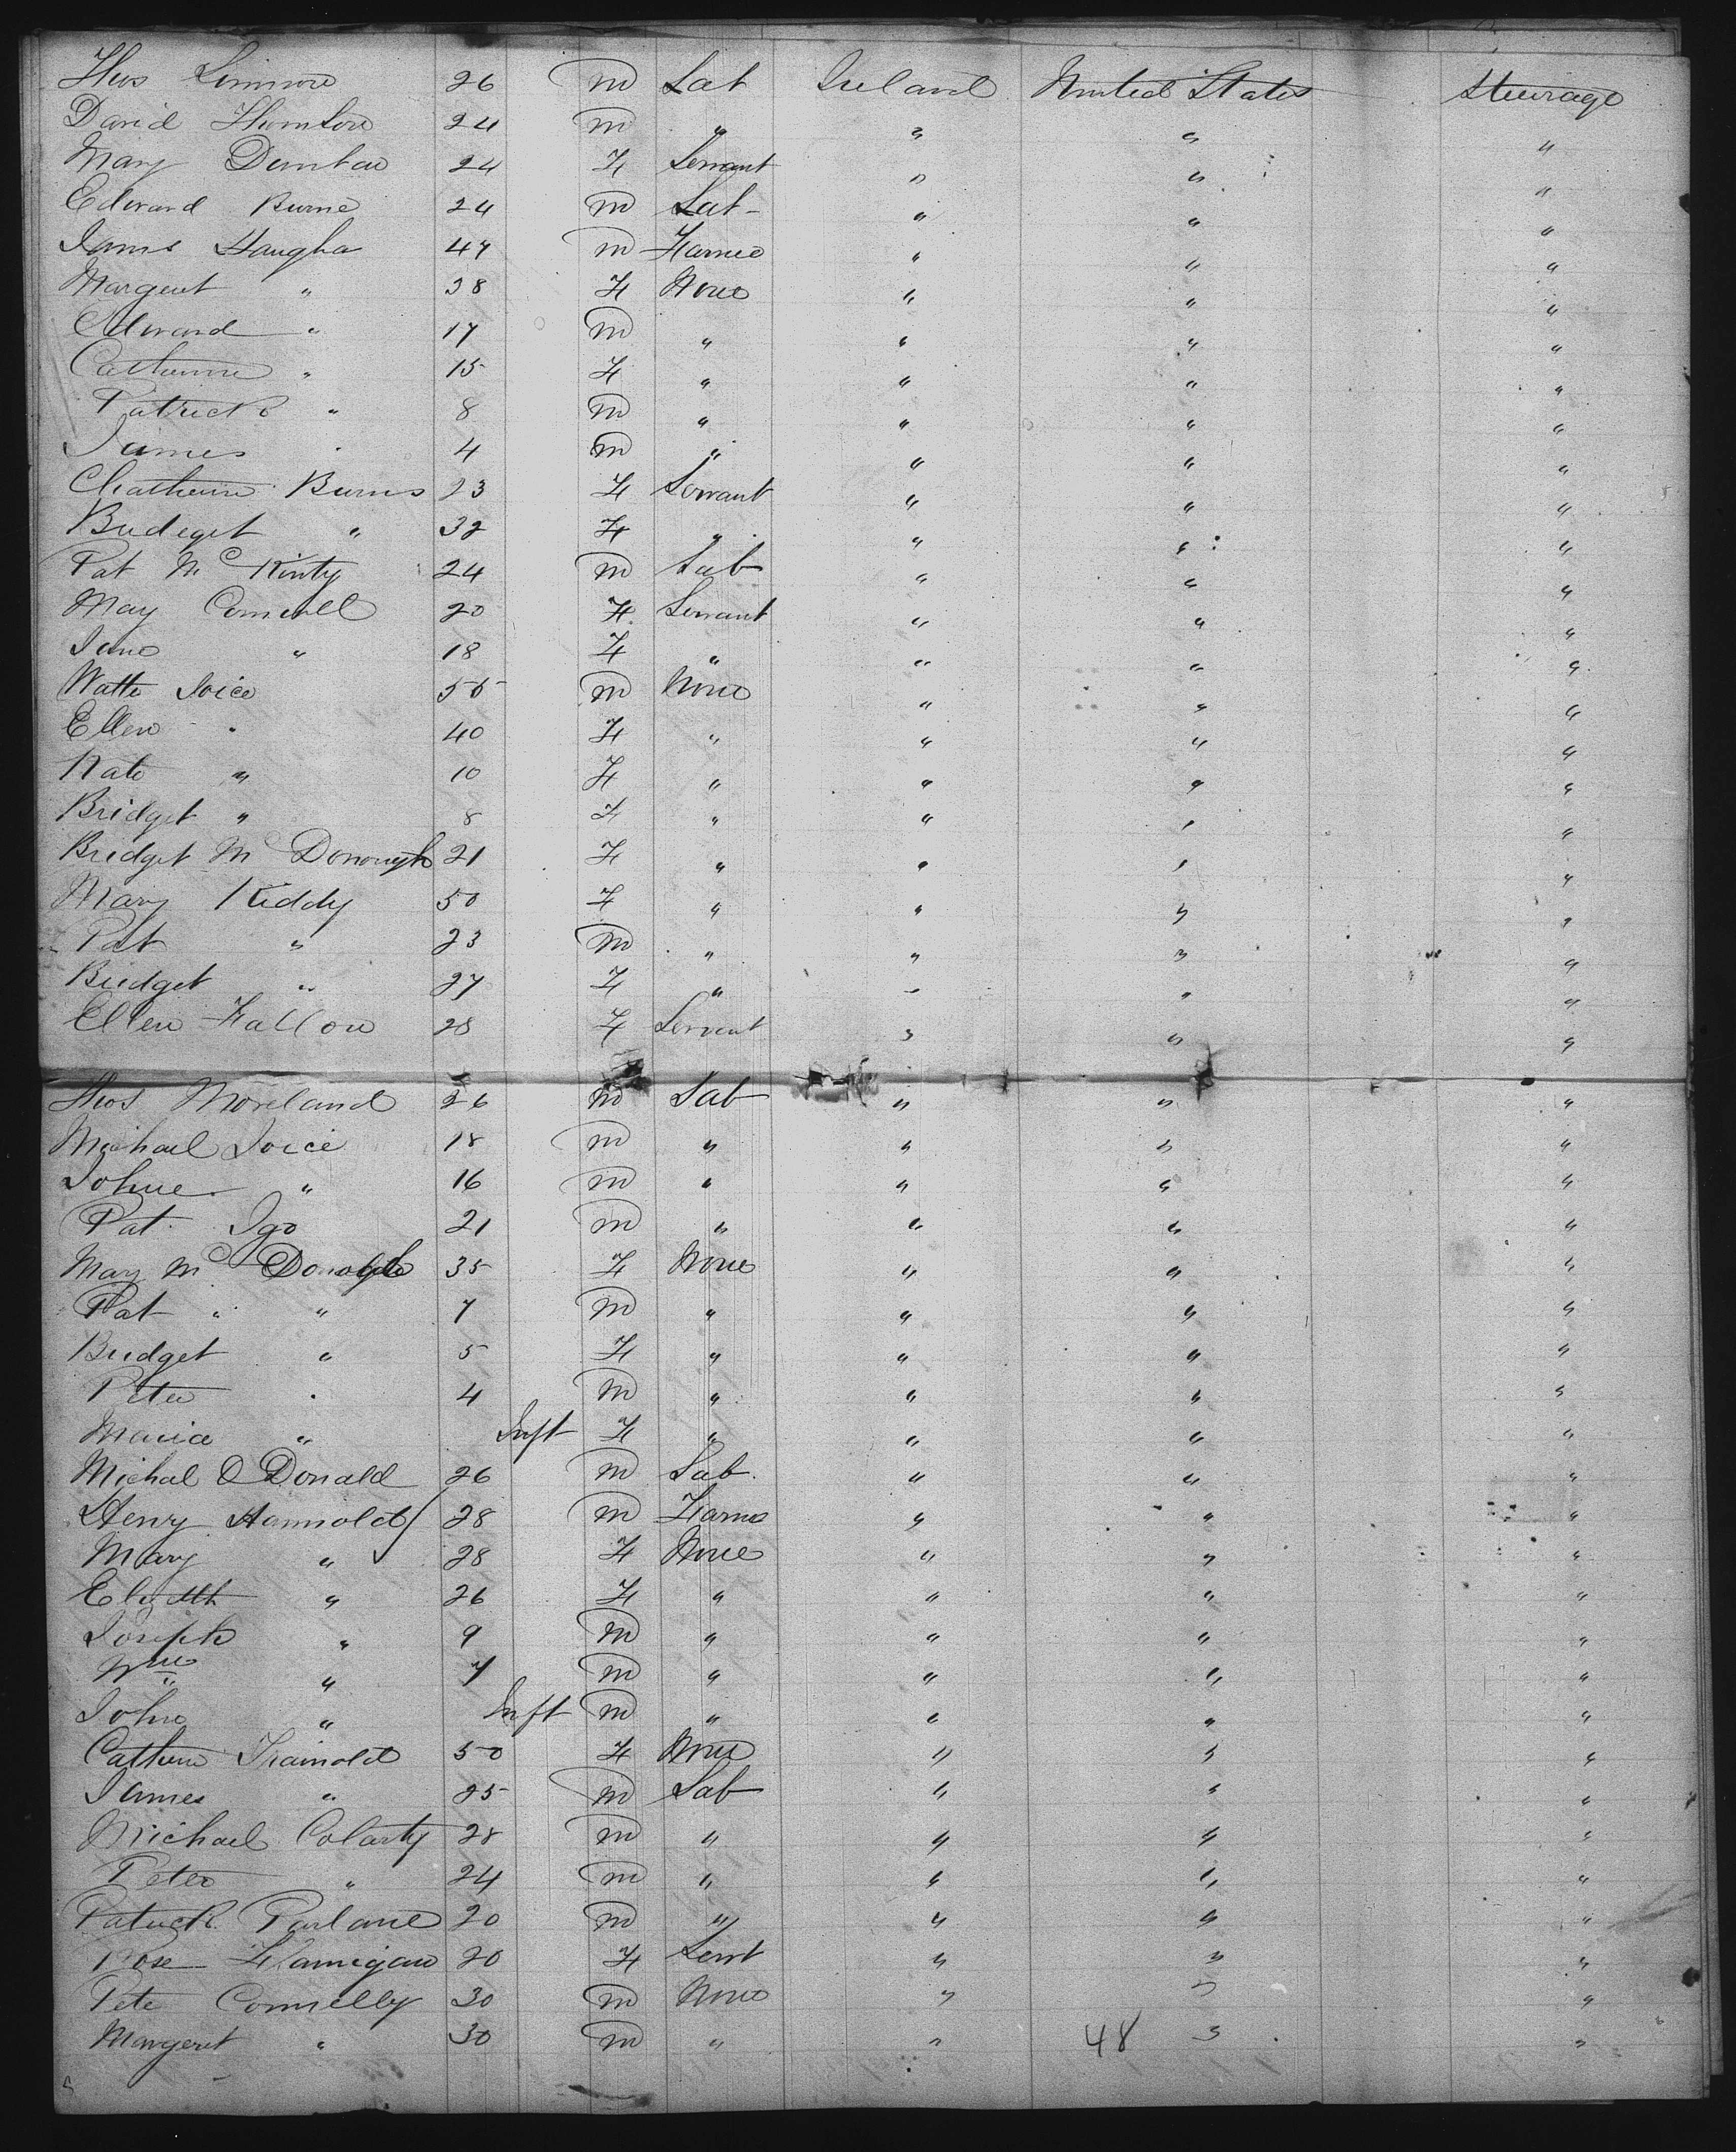 Thos 26 m Lab Ireland United States Steerage
David 24 m " " " "
Mary Dunbar 24 F Servant " " "
Edward Burne 24 m Lab " " "
James Haugha 47 m Farmer " " "
Margeret " 38 F None " " "
Edward " 17 m " " " "
Catherine " 15 F " " " "
Patrick " 8 m " " " "
James " 4 m " " " "
Chatherine Burns 23 F Servant " " "
Bridget " 32 F " " " "
Pat Mc Kinty 24 m Lab " " "
May 20 F Servant " " "
Jane " 18 F " " " "
Joice 50 m None " " "
Ellen " 40 F " " " "
Kate " 10 F " " " "
Bridget " 8 F " " " "
Bridget Mc Donough 21 F " " " "
Mary Kiddy 50 F " " " "
Pat " 23 m " " " "
Bridget " 27 F " " " "
Ellen Fallon 28 F Servant " " "
Thos Moreland 26 m Lab " " "
Michael Joice 18 m " " " "
John " 16 m " " " "
Pat Igo 21 m " " " "
May Mc 35 F None " " "
Pat " " 7 m " " " "
Bridget " 5 F " " " "
Peter " 4 m " " " "
Maria " Inft F " " " "
Michal O Donald 26 m Lab " " "
Henry 28 m Farmer " " "
Mary " 28 F None " " "
" 26 F " " " "
Joseph " 9 m " " " "
Wm " 7 m " " " "
John " Inft m " " " "
Cathern 50 F None " " "
James " 25 m Lab " " "
Michael Colarty 28 m " " " "
Peter " 24 m " " " "
Patrick Parlane 20 m " " " "
Rose Flannigan 20 F Sernt " " "
Pete Connelly 30 m None " " "
Margeret " 30 m " " 48 " "